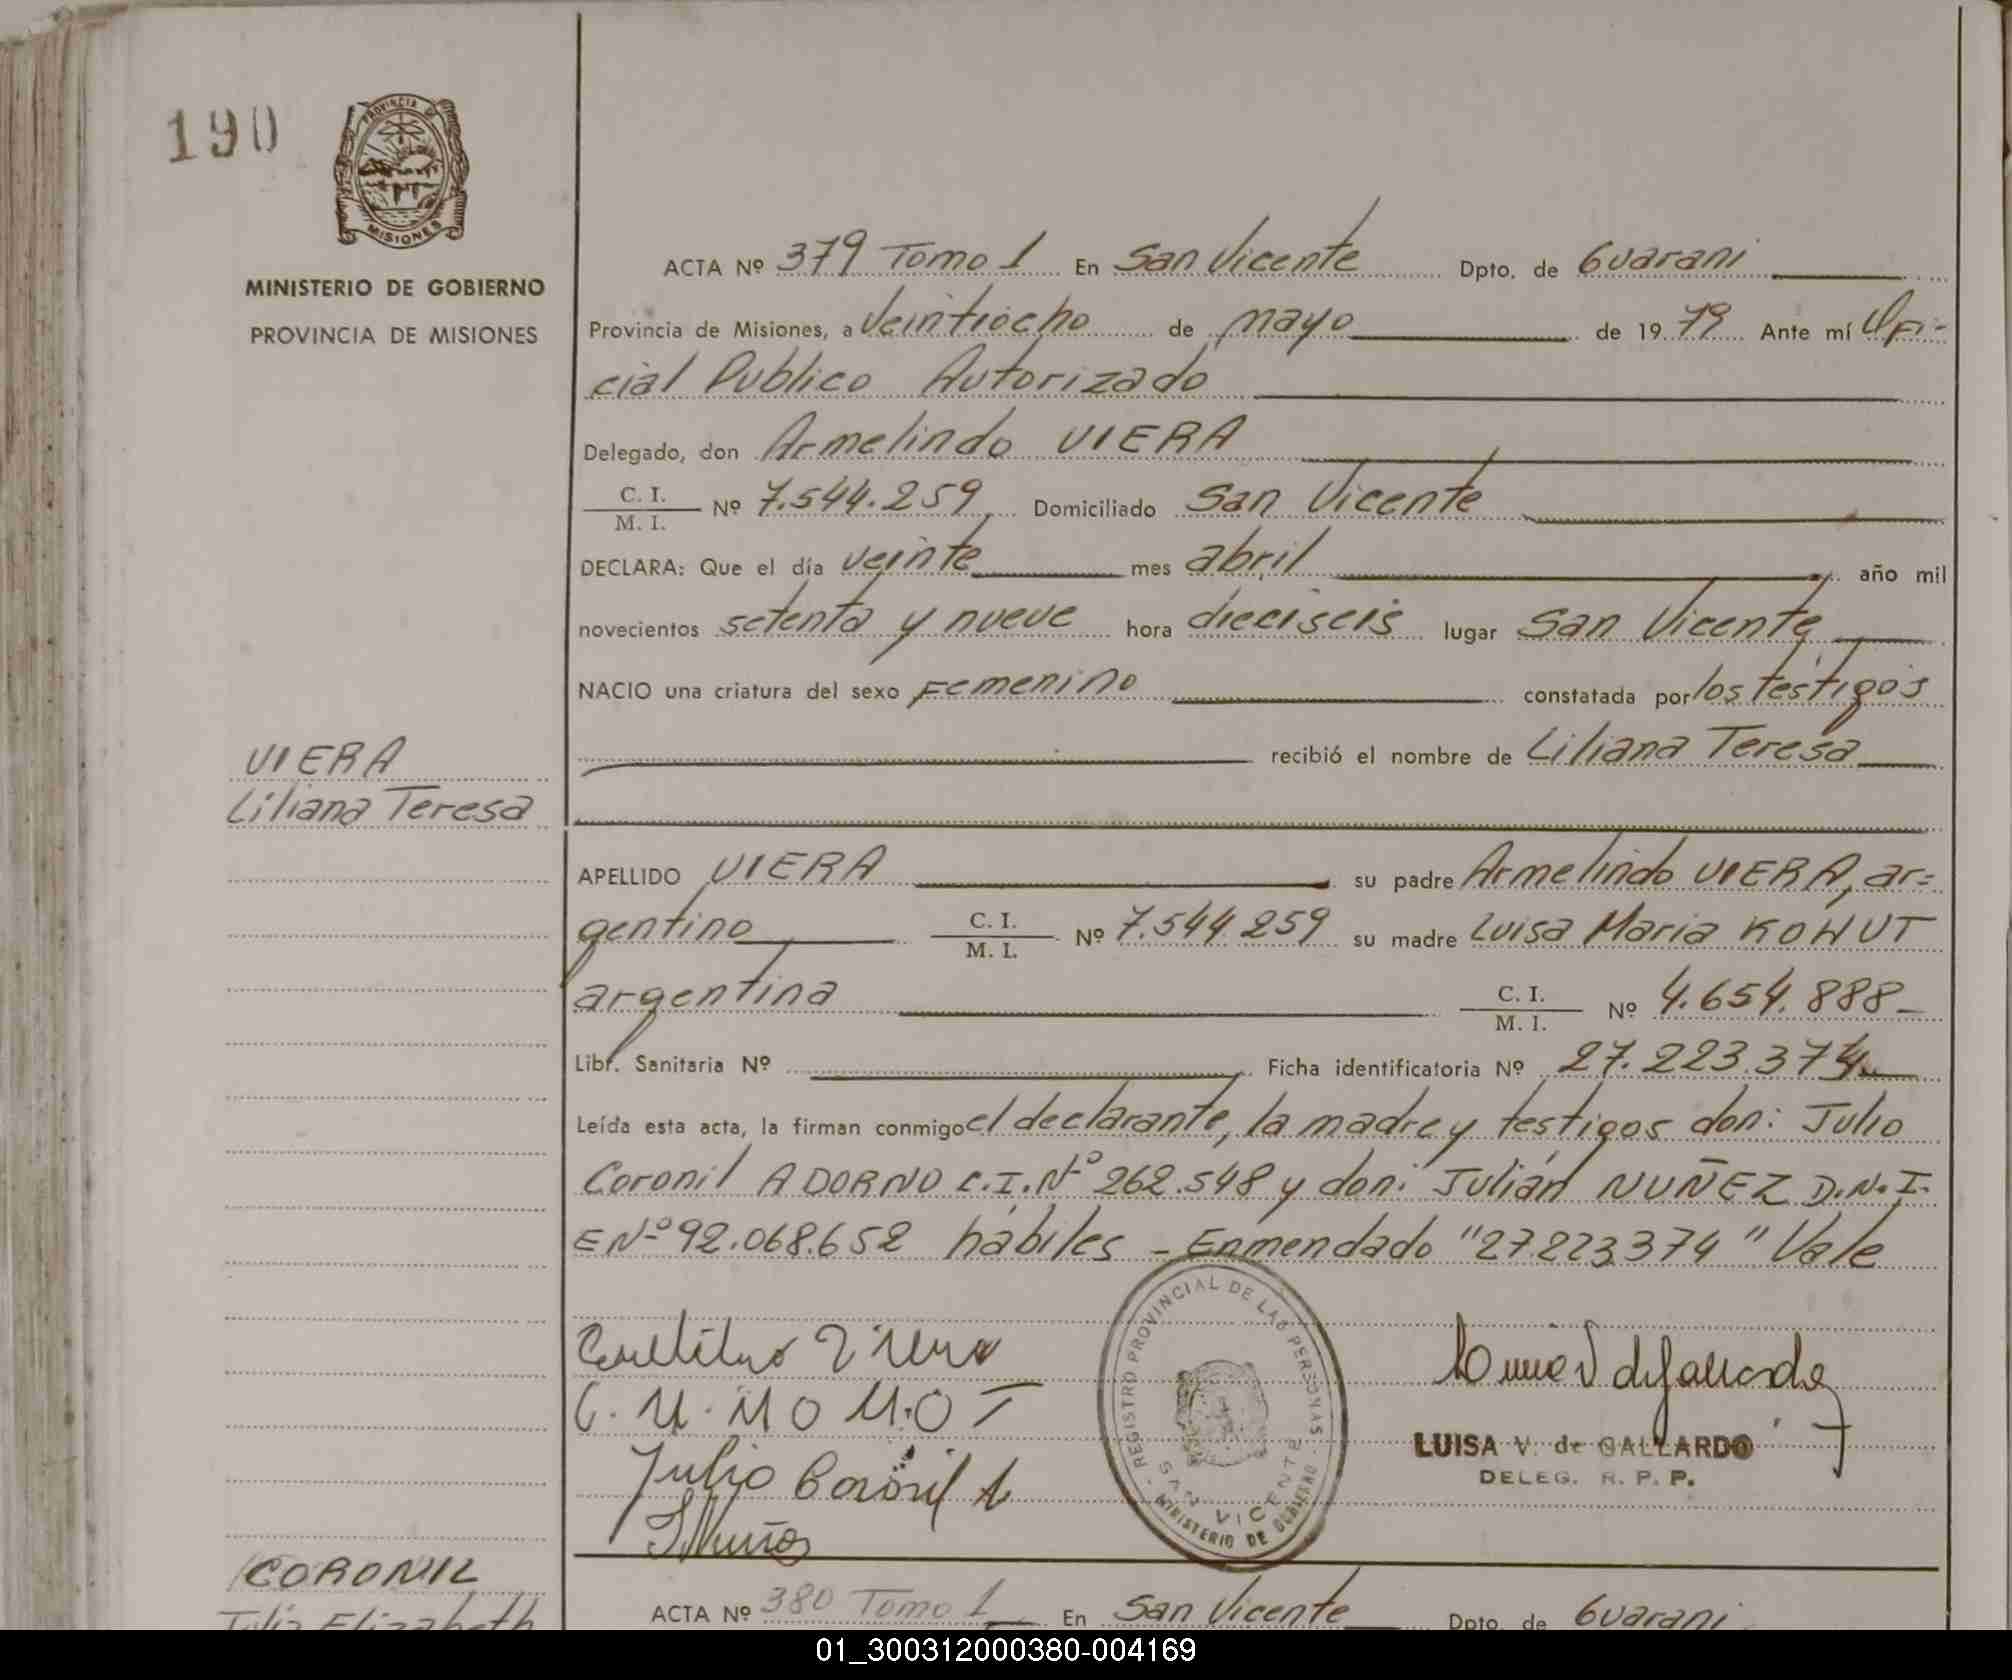 190
PROVINCIA DE
MISIONES
MINISTERIO DE GOBIERNO
PROVINCIA DE MISIONES
ACTA Nº 379 Tomo 1 En San Vicente Dpto. de Guarani
Provincia de Misiones, a veintiocho de mayo de 1979 Ante mí Ofi-
cial Publico Autorizado
Delegado, don Armelindo VIERA
C. I.
M. I. Nº 7.544.259 Domiciliado San Vicente
DECLARA: Que el día veinte mes abril año mil
novecientos setenta y nueve hora dieciseis lugar San Vicente
NACIO una criatura del sexo Femenino constatada por los testigos
recibió el nombre de Liliana Teresa
VIERA
Liliana Teresa
APELLIDO VIERA su padre Armelindo VIERA, ar=
gentino C. I. M. I. Nº 7.544.259 su madre Luisa Maria KOHUT
argentina C. I. M. I. Nº 4.654.888-
Libr. Sanitaria Nº Ficha identificatoria Nº 27.223.374
Leída esta acta, la firman conmigo el declarante, la madre y testigos don: Julio
Coronil ADORNO C.I. Nº 262.548 y don: Julián NUÑEZ D.N.I.
E Nº 92.068.652 hábiles - Enmendado "27.223.374" Vale
Julio Coronil A
REGISTRO PROVINCIAL DE LAS PERSONAS
SAN VICENTE
MINISTERIO DE GOBIERNO
LUISA V. de GALLARDO
DELEG. R. P. P.
CORONIL
Julia Elizabeth
ACTA Nº 380 Tomo 1 En San Vicente Dpto. de Guarani
01_300312000380-004169